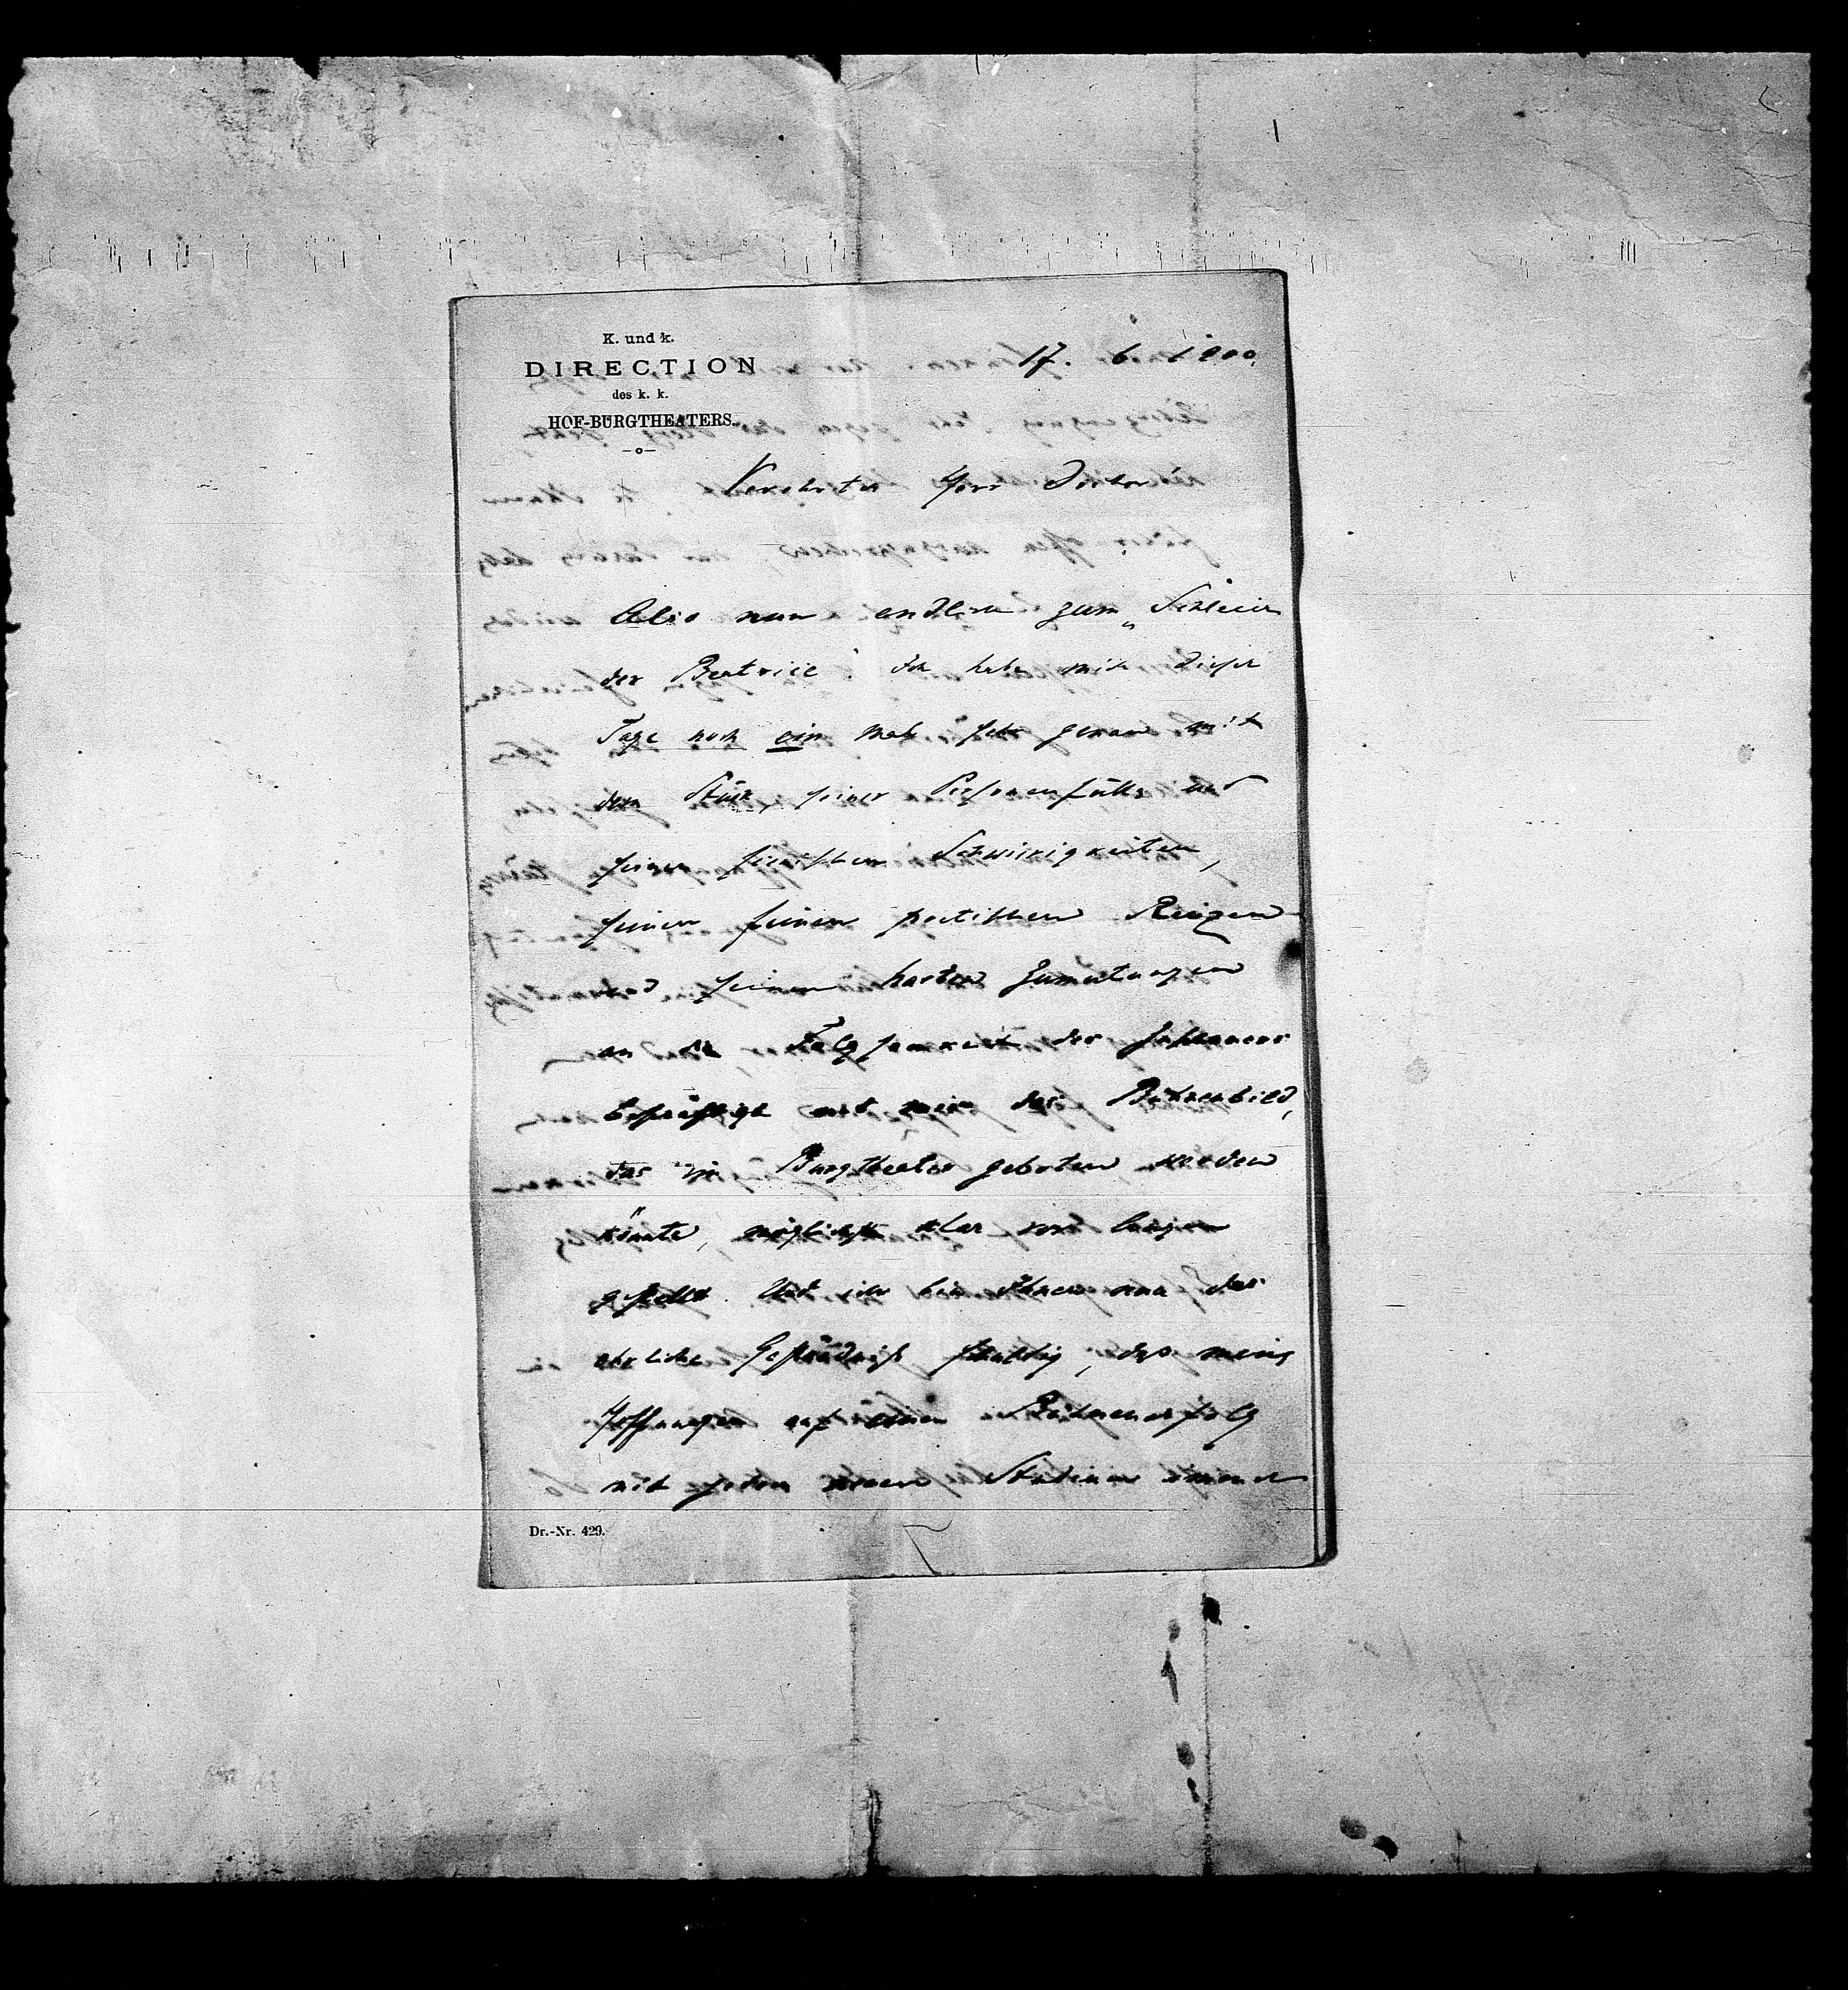 K. und k.
DIRECTION
des k. k.
HOF-BURGTHEATERS.
17. 6. 1900.
Verehrter Herr Doctor
Also nun endlich zum „Schleier
der Beatrice“. Ich habe mich dieser
Tage noch ein mal sehr genau mit
dem Stück, seiner Personenfülle und
seinen scenischen Schwierigkeiten,
seinen feinen poetischen Reizen
und seinen harten Zumutungen
an die Folgsamkeit der Zuschauer
beschäftigt und mir das Bühnenbild,
das im Burgtheater geboten werden
könnte, möglichst klar vor Augen
gestellt. Und ich bin Ihnen nun das
ehrliche Geständniß schuldig, daß meine
Hoffnungen auf einen Bühnenerfolg
mit jedem neuen Studium immer
Dr.-Nr. 429.